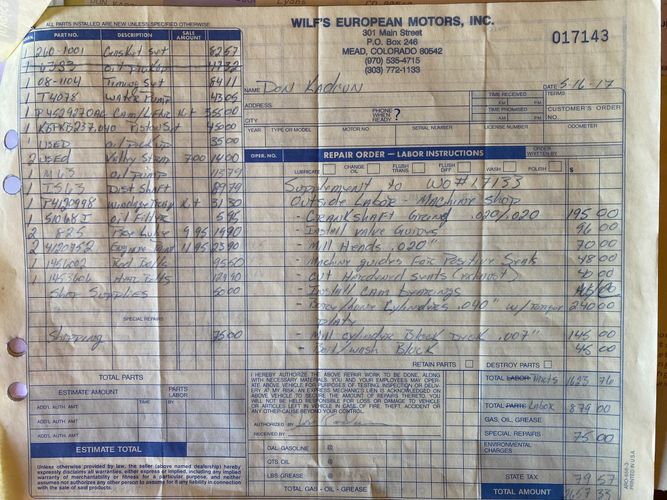 ALL PARTS INSTALLED ARE NEW UNLESS SPECIFIED OTHERWISE
PART NO. DESCRIPTION SALE AMOUNT
1 260-1001 Gasket Set 8257
1 oil pickup 4732
1 08-1104 Timing Set 8411
1 T4078 Water Pump 4305
1 Cam/Lifter Kit 35500
1 Piston Set 45000
1 USED oil pickup 3500
2 USED Valley 700 1400
1 M63 oil pump
1 IS63 Dist Shaft 8979
1 P4120998 Kit 3130
1 51068I oil Filter 595
2 8-25 Lube 995 1990
2 4120752 Engine Paint 1195 2390
1 1456002 Rod Bolts 9550
1 Bolts
Shop Supplies 5000
SPECIAL REPAIRS
Shipping 7500
TOTAL PARTS
ESTIMATE AMOUNT PARTS LABOR
ADD'L AUTH. AMT. TIME BY
ADD'L AUTH. AMT.
ADD'L AUTH. AMT.
ESTIMATE TOTAL
Unless otherwise provided by law, the seller (above named dealership) hereby
expressly disclaims all warranties, either express or implied, including any implied
warranty of merchantability or fitness for a particular purpose, and neither
assumes nor authorizes any other person to assume for it any liability in connection
with the sale of said products.
WILF'S EUROPEAN MOTORS, INC.
301 Main Street
P.O. Box 246
MEAD, COLORADO 80542
(970) 535-4715
(303) 772-1133
017143
NAME Don DATE 5-16-17
ADDRESS TIME RECEIVED A.M. P.M. TERMS
CITY PHONE WHEN READY ? TIME PROMISED A.M. P.M. CUSTOMER'S ORDER NO.
YEAR TYPE OR MODEL MOTOR NO. SERIAL NUMBER LICENSE NUMBER ODOMETER
OPER. NO. REPAIR ORDER — LABOR INSTRUCTIONS ORDER WRITTEN BY
LUBRICATE CHANGE OIL FLUSH TRANS. FLUSH DIFF. WASH POLISH $
Supplement to WO#17133
Outside Labor - Machine Shop
- Crankshaft Grind .020/.020 195 00
- Install Valve Guides 96 00
- Mill Heads .020" 70 00
- Machine guides For Positive Seals 48 00
- Cut Hardened seats (exhaust)
- Install Cam bearings
- Bore/hone Cylinders .040" w/Torque 240 00
plate
- Mill cylinder Block Deck .007" 145 00
- Boil/wash Block 45 00
RETAIN PARTS DESTROY PARTS
I HEREBY AUTHORIZE THE ABOVE REPAIR WORK TO BE DONE, ALONG
WITH NECESSARY MATERIALS. YOU AND YOUR EMPLOYEES MAY OPER-
ATE ABOVE VEHICLE FOR PURPOSES OF TESTING, INSPECTION OR DELIV-
ERY AT MY RISK. AN EXPRESS MECHANICS LIEN IS ACKNOWLEDGED ON
ABOVE VEHICLE TO SECURE THE AMOUNT OF REPAIRS THERETO. YOU
WILL NOT BE HELD RESPONSIBLE FOR LOSS OR DAMAGE TO VEHICLE
OR ARTICLES LEFT IN VEHICLE IN CASE OF FIRE, THEFT, ACCIDENT OR
ANY OTHER CAUSE BEYOND YOUR CONTROL.
AUTHORIZED BY
RECEIVED BY
GAL. GASOLINE @
QTS. OIL @
LBS GREASE @
TOTAL GAS - OIL - GREASE
TOTAL LABOR Parts 1623 76
TOTAL PARTS Labor 879 00
GAS, OIL, GREASE
SPECIAL REPAIRS 75 00
ENVIRONMENTAL CHARGES
STATE TAX 79 57
TOTAL AMOUNT 2657 33
PRINTED IN U.S.A.